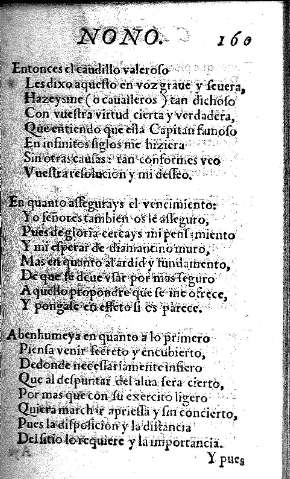 NONO. 160
Entonces el caudillo valeroso
Les dixo aquesto en voz graue y seuera,
Hazeysme (o caualleros) tan dichoso
Con vuestra virtud cierta y verdadera,
Que entiendo que essa Capitan famoso
En infinitos siglos me hiziera
Sin otras causas: tan conformes veo
Vuestra resolucion y mi desseo.
En quanto assegurays el vencimiento:
Yo señores tambien os le asseguro,
Pues de gloria cercays mi pensamiento
Y mi esperar de diamantino muro,
Mas en quanto al ardid y fundamento,
De que se deue vsar por mas seguro
Aquello propondre que se me ofrece,
Y pongase en effeto si os parece.
Abenhumeya en quanto a lo primero
Piensa venir secreto y encubierto,
De donde necessariamente infiero
Que al despuntar del alua sera cierto,
Por mas que con su exercito ligero
Quiera marchar apriessa y sin concierto,
Pues la disposicion y la distancia
Del sitio lo requiere y la importancia.
Y pues